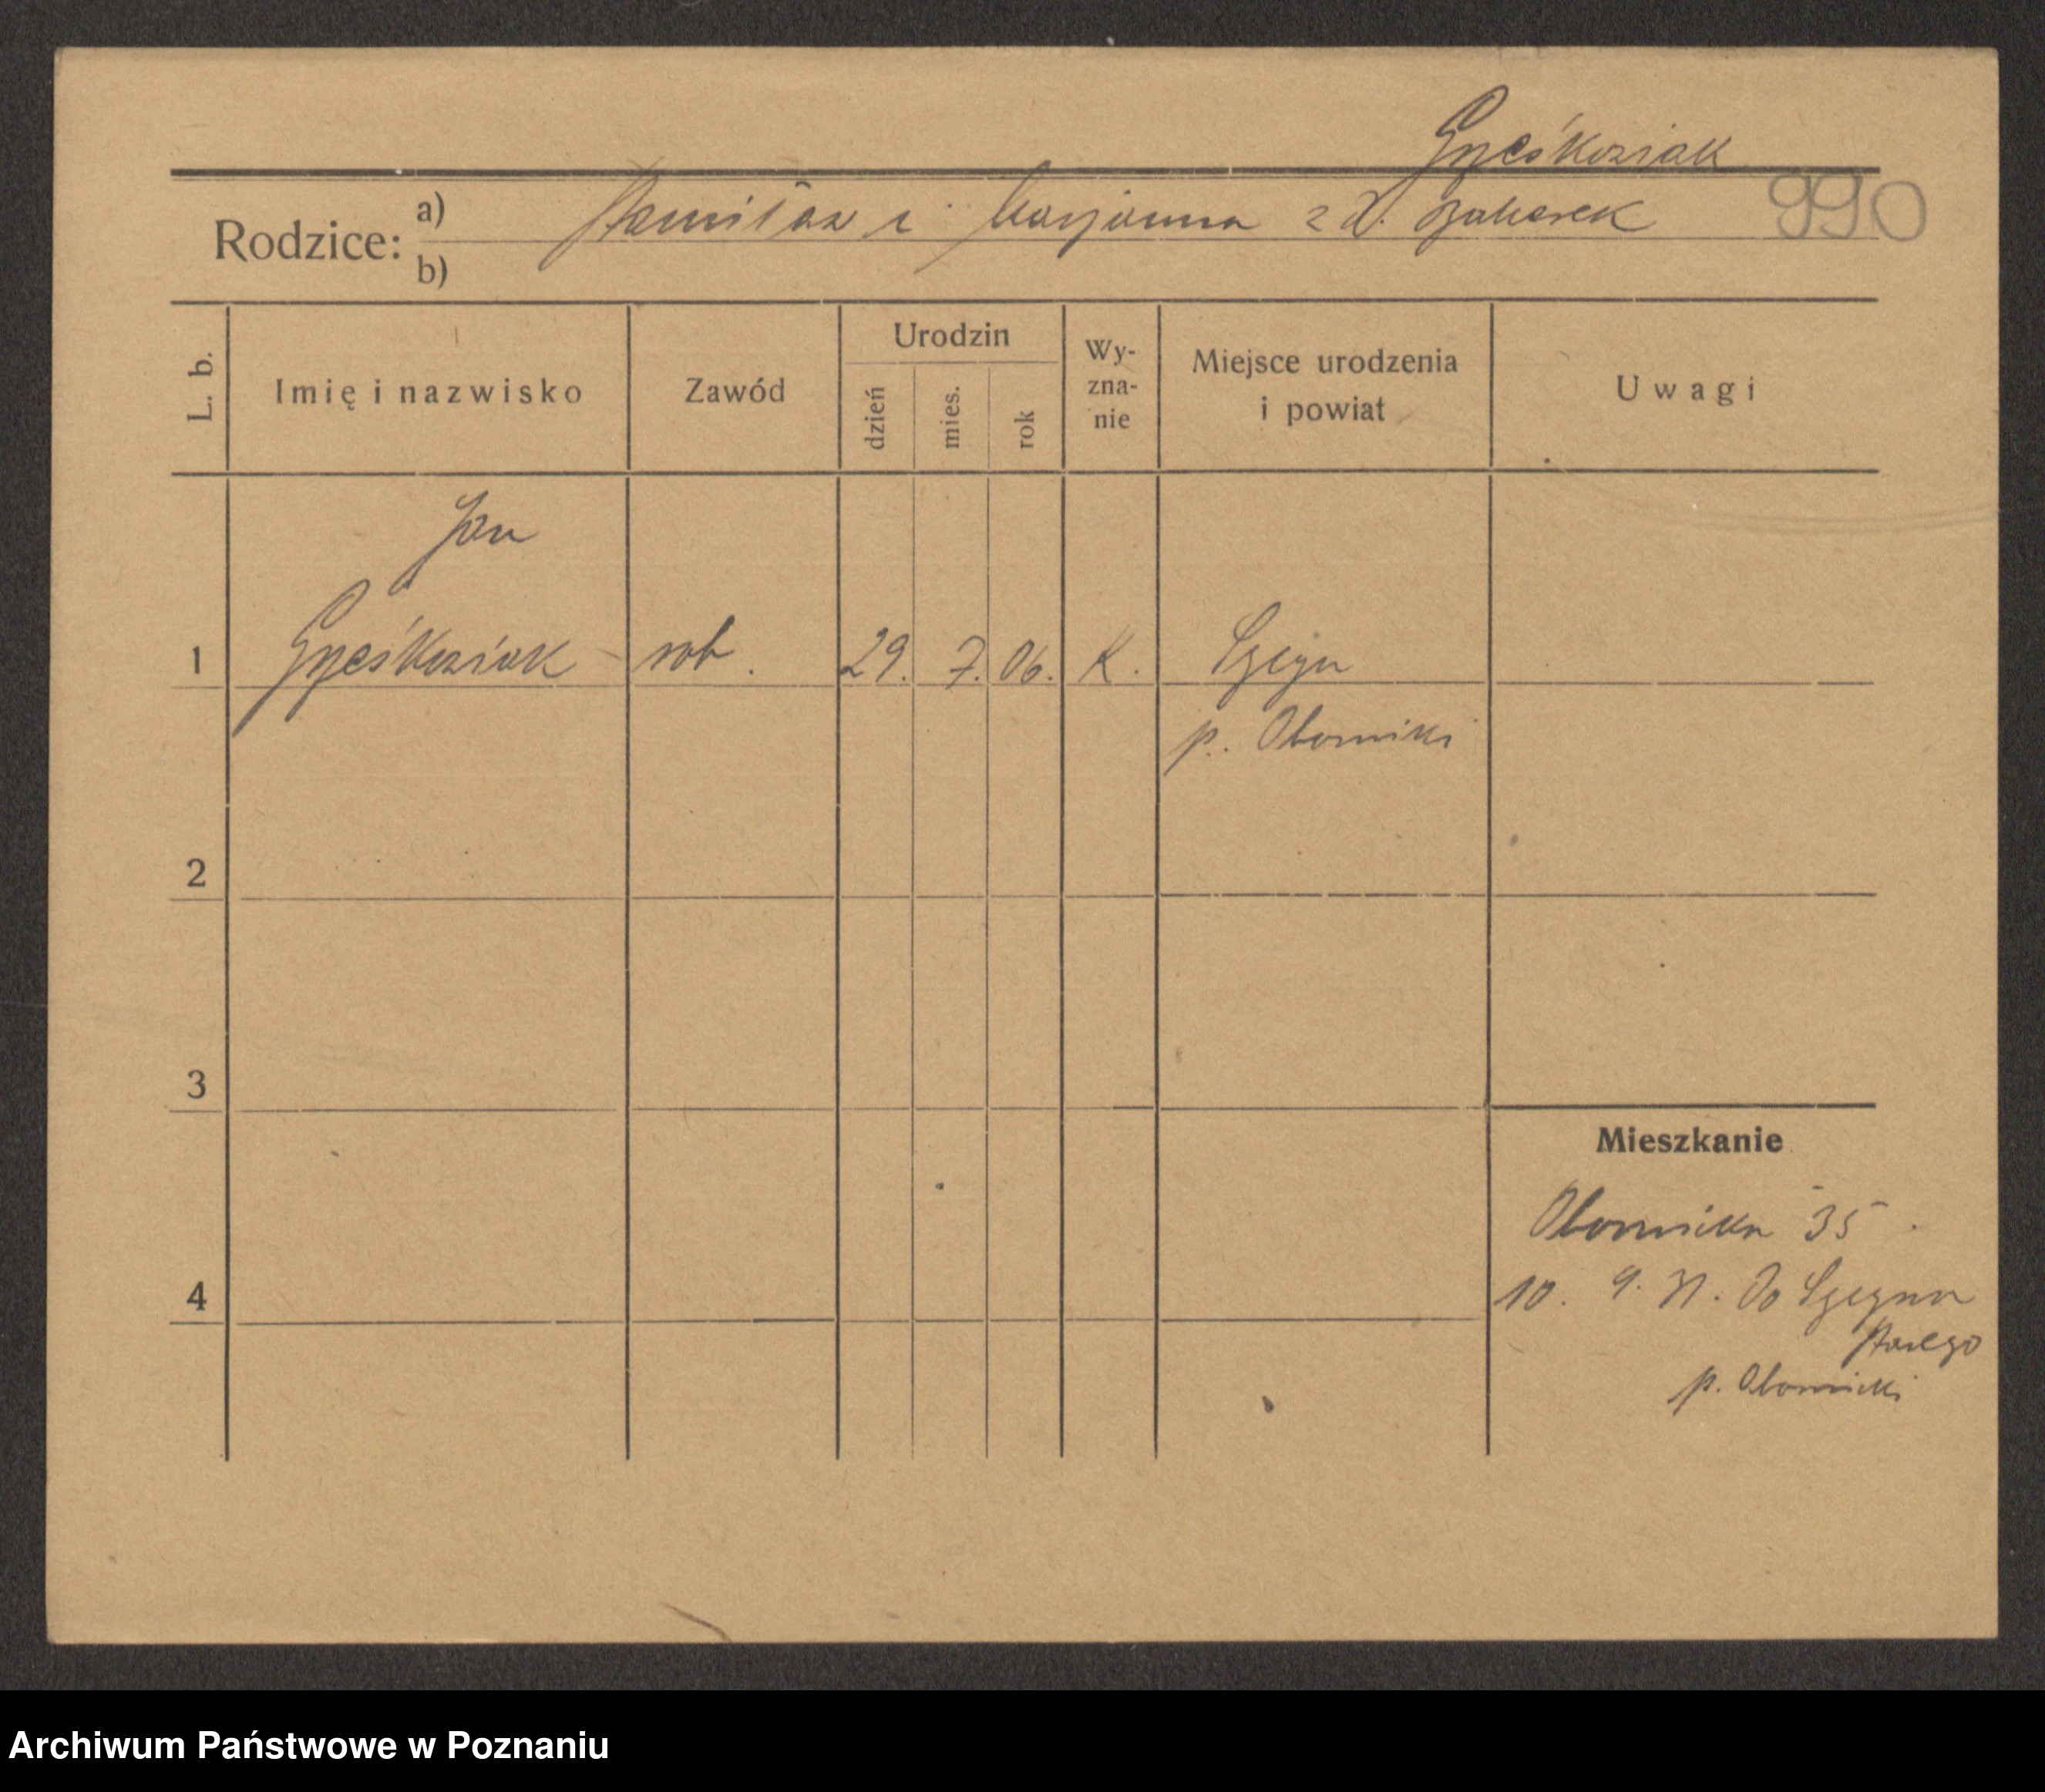 Grześkowiak
990
Rodzice:
a) Stanisław i Marjanna z d.
b)
L. b.
Imię i nazwisko
Zawód
Urodzin
dzień
mies.
rok
Wy-
zna-
nie
Miejsce urodzenia
i powiat
Uwagi
Jan
1 Grześkowiak rob. 29. 7. 06. K.
p. Oborniki
2
3
4
Mieszkanie
Obornicka 35
10. 9. 31. Do
Starego
p. Oborniki
Archiwum Państwowe w Poznaniu